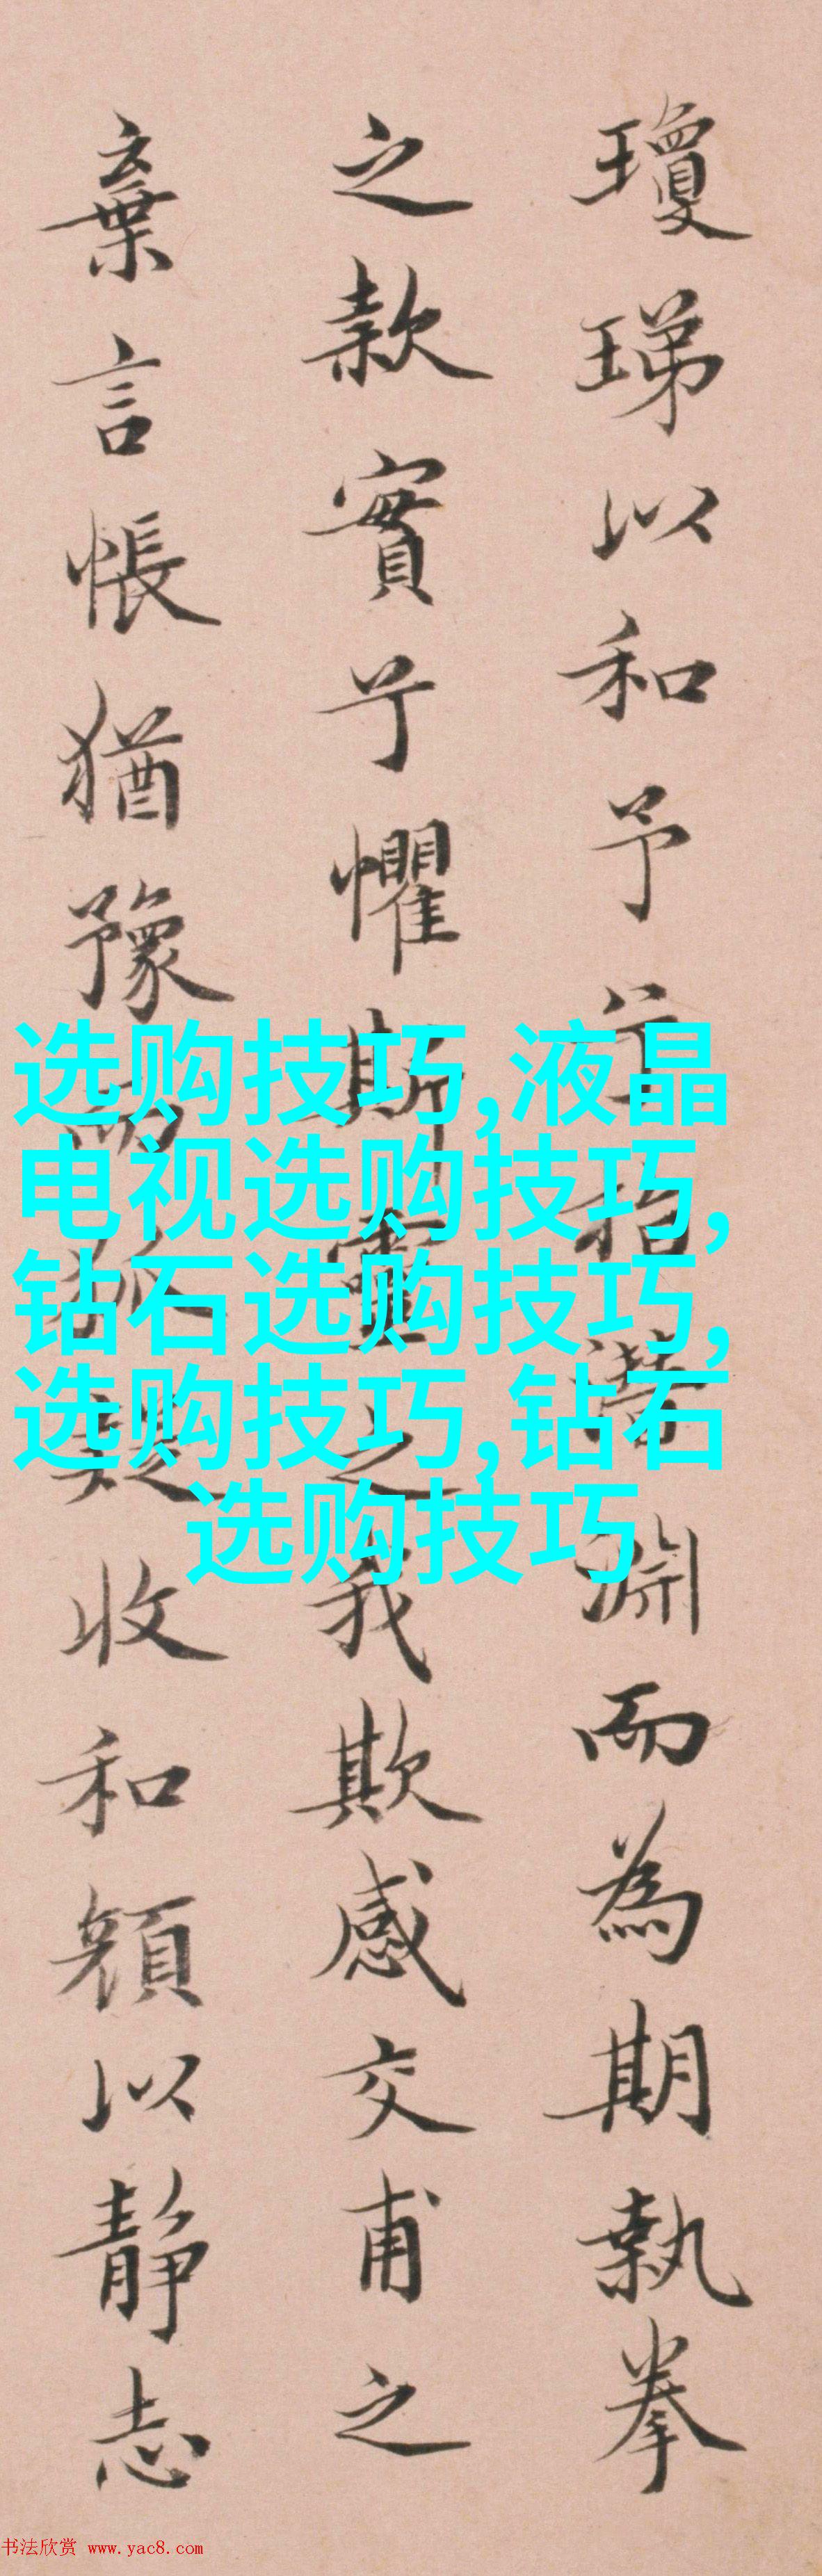 瓊珶以和予兮指潛淵而為期執拳
之款實兮懼斯靈之我欺感交甫之
棄言悵猶豫而狐疑收和顏以靜志
选购技巧,液晶
电视选购技巧,
钻石选购技巧,
选购技巧,钻石
选购技巧
书法欣赏 www.yac8.com